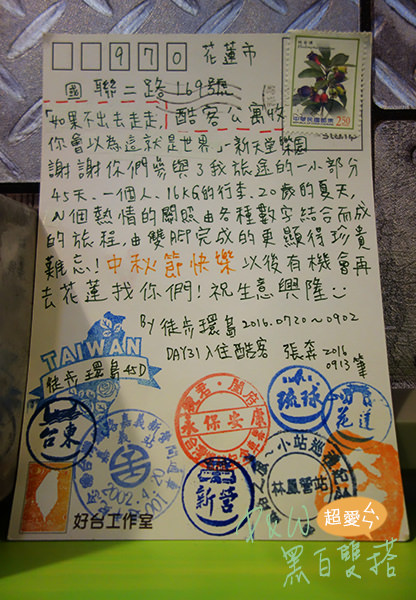 970 花蓮市
國聯二路169號
酷客公寓收
「如果不出去走走,
你會以為這就是世界」新天堂樂園
謝謝你們參與了我旅途的一小部分
45天、一個人、16KG的行李、20歲的夏天
N個熱情的關照由各種數字結合而成
的旅程,由雙腳完成的更顯得珍貴
難忘!中秋節快樂 以後有機會再
去花蓮找你們!祝生意興隆
BY 徒步環島 2016.0720~0902
DAY31入住酷客 張森 2016
0913筆
中華民國郵票
250
TAIWAN
徒步環島45D
台東
2002.4.20
永保安康
新營
琉球
花蓮
林鳳營站
好台工作室
超愛
黑白雙搭